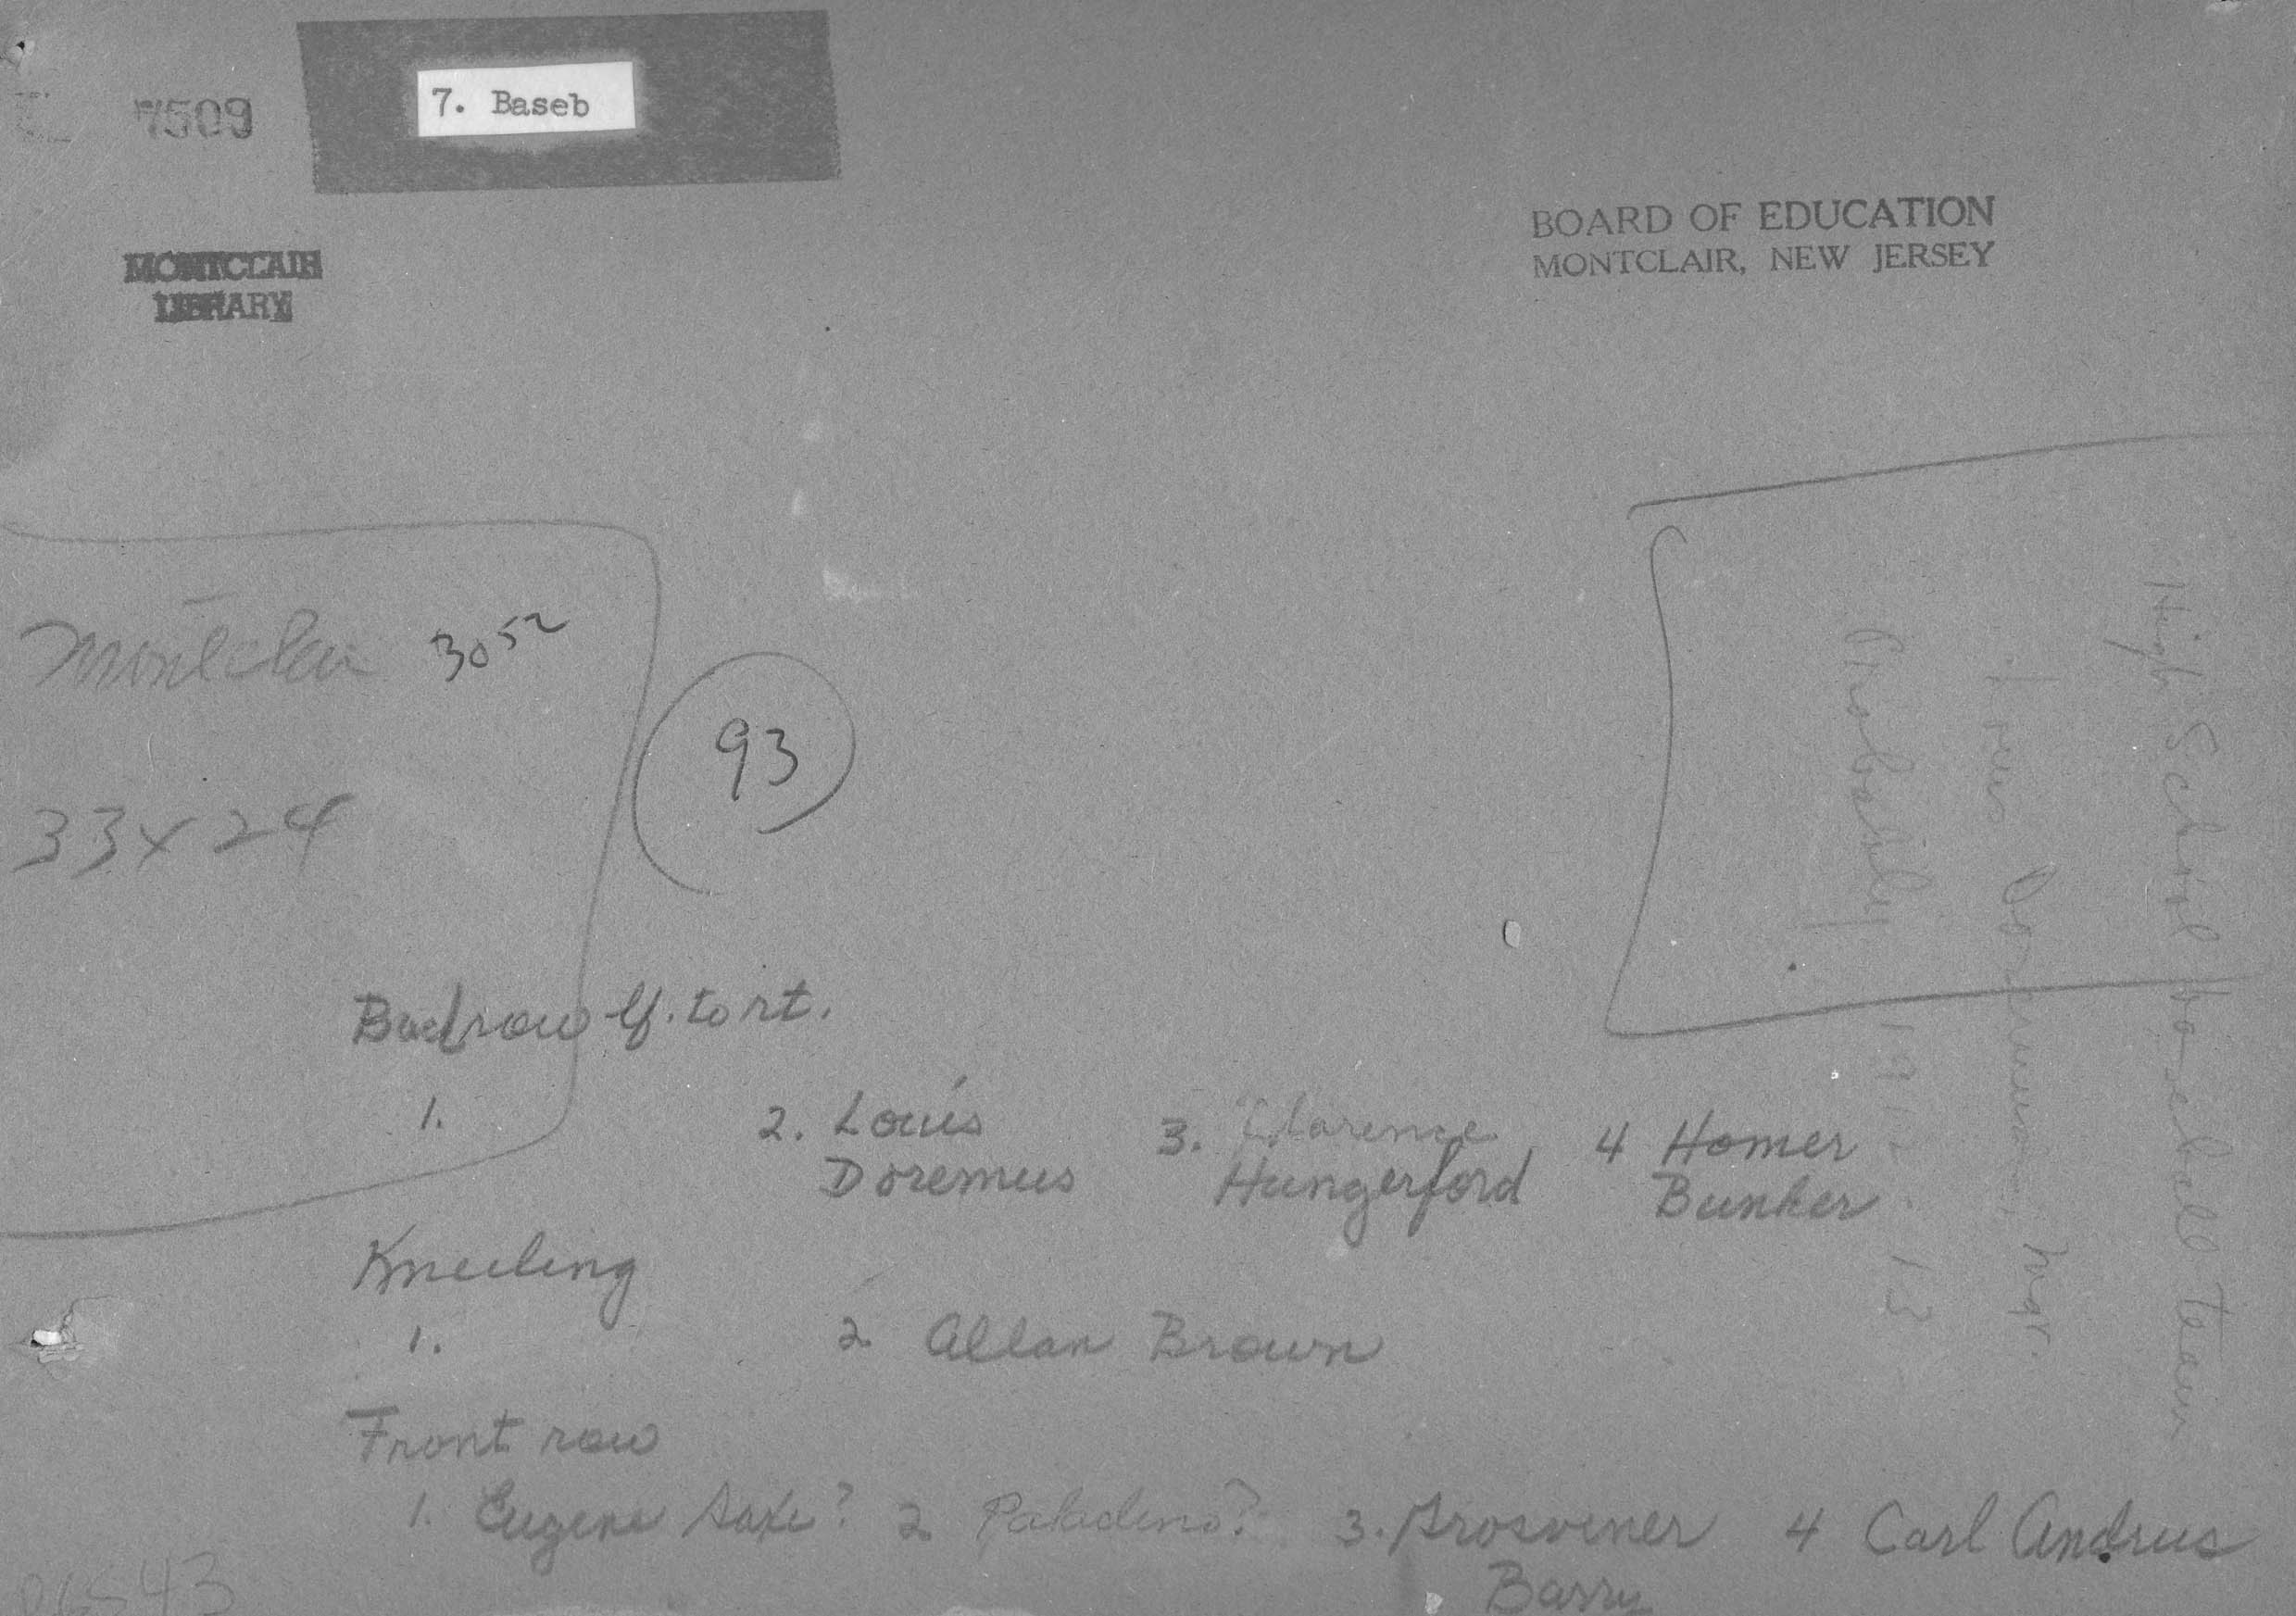 7509
7. Baseb
MONTCLAIR
LIBRARY
BOARD OF EDUCATION
MONTCLAIR, NEW JERSEY
Montclair 3052
93
33 x 24
High School baseball team
Lou Doremus, mgr.
Probably 1912-13
Back row lf. to rt.
1. 2. Louis 3. Clarence 4 Homer
Doremus Hungerford Bunker
Kneeling
1. 2 Allan Brown
Front row
1. Eugene Saxe? 2 Paladeno? 3. Grosvener 4 Carl Andrus
Barry